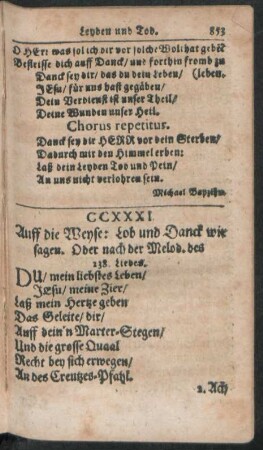 Leyden und Tod. 853
O HErr was sol ich dir vor solche Wolthat geben
Befleisse dich auff Danck/ und forthin fromb zu
Danck sey dir/ das du dein Leben/ (leben.
JEsu/ für uns hast gegäben/
Dein Verdienst ist unser Theil/
Deine Wunden unser Heil.
Chorus repetitur.
Danck sey dir HERR vor dein Sterben/
Dadurch mit den Himmel erben:
Laß dein Leyden Tod und Pein/
An uns nicht verlohren sein.
Michael
CCXXXI.
Auff die Weyse: Lob und Danck wir
sagen. Oder nach der Melod. des
138. Liedes.
DU/ mein liebstes Leben/
JEsu/ meine Zier/
Laß mein Hertze geben
Das Geleite/ dir/
Auff dein'n Marter-Stegen/
Und die grosse Quaal
Recht bey sich erwegen/
An des Creutzes-Pfahl.
2. Ach